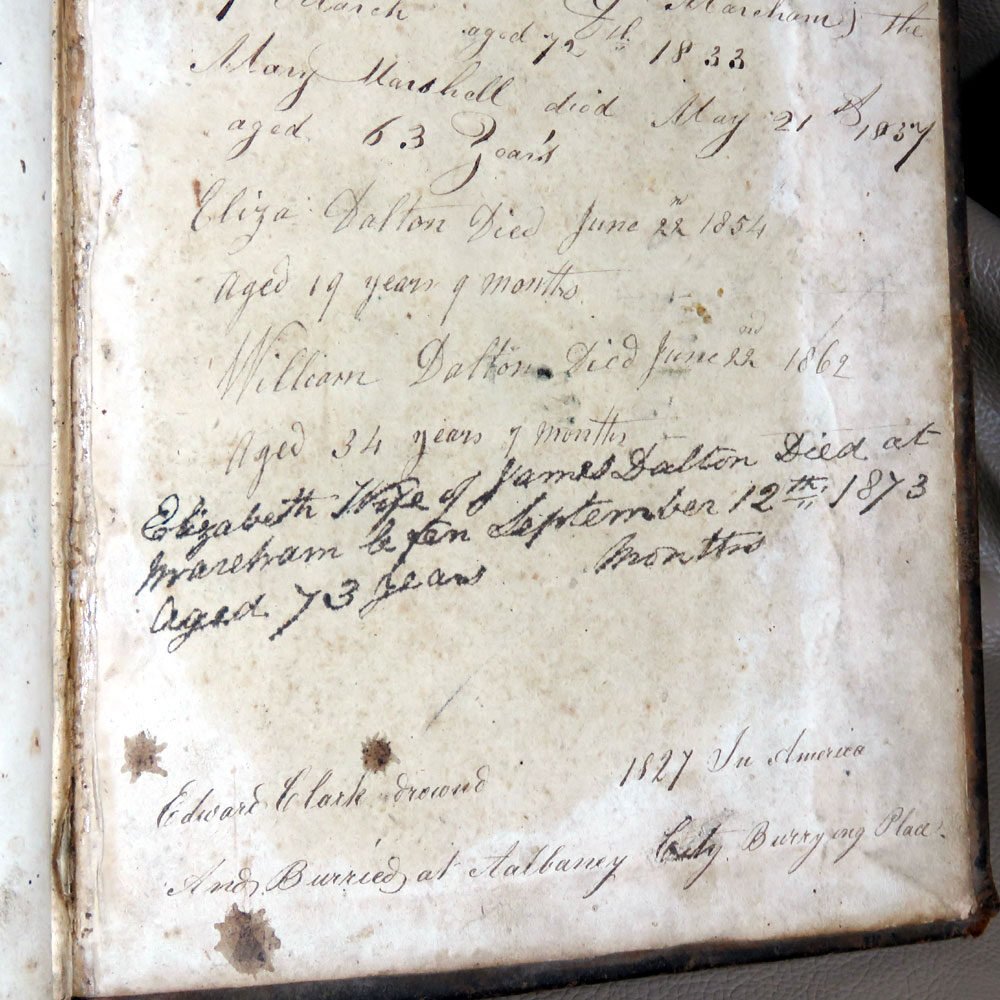 March of Mareham the
aged 72 th 1833
Mary Marshell died May 21 st 1837
aged 63 Years
Eliza Dalton Died June 22 nd 1854
Aged 19 years 9 months
William Dalton Died June 22 nd 1862
Aged 34 years 9 months
Elizabeth Wife of James Dalton Died at
Mareham le fen September 12th 1873
Aged 73 years months
Edward Clark drownd 1827 In America
And Burried at Aalbaney City Burrying Place.